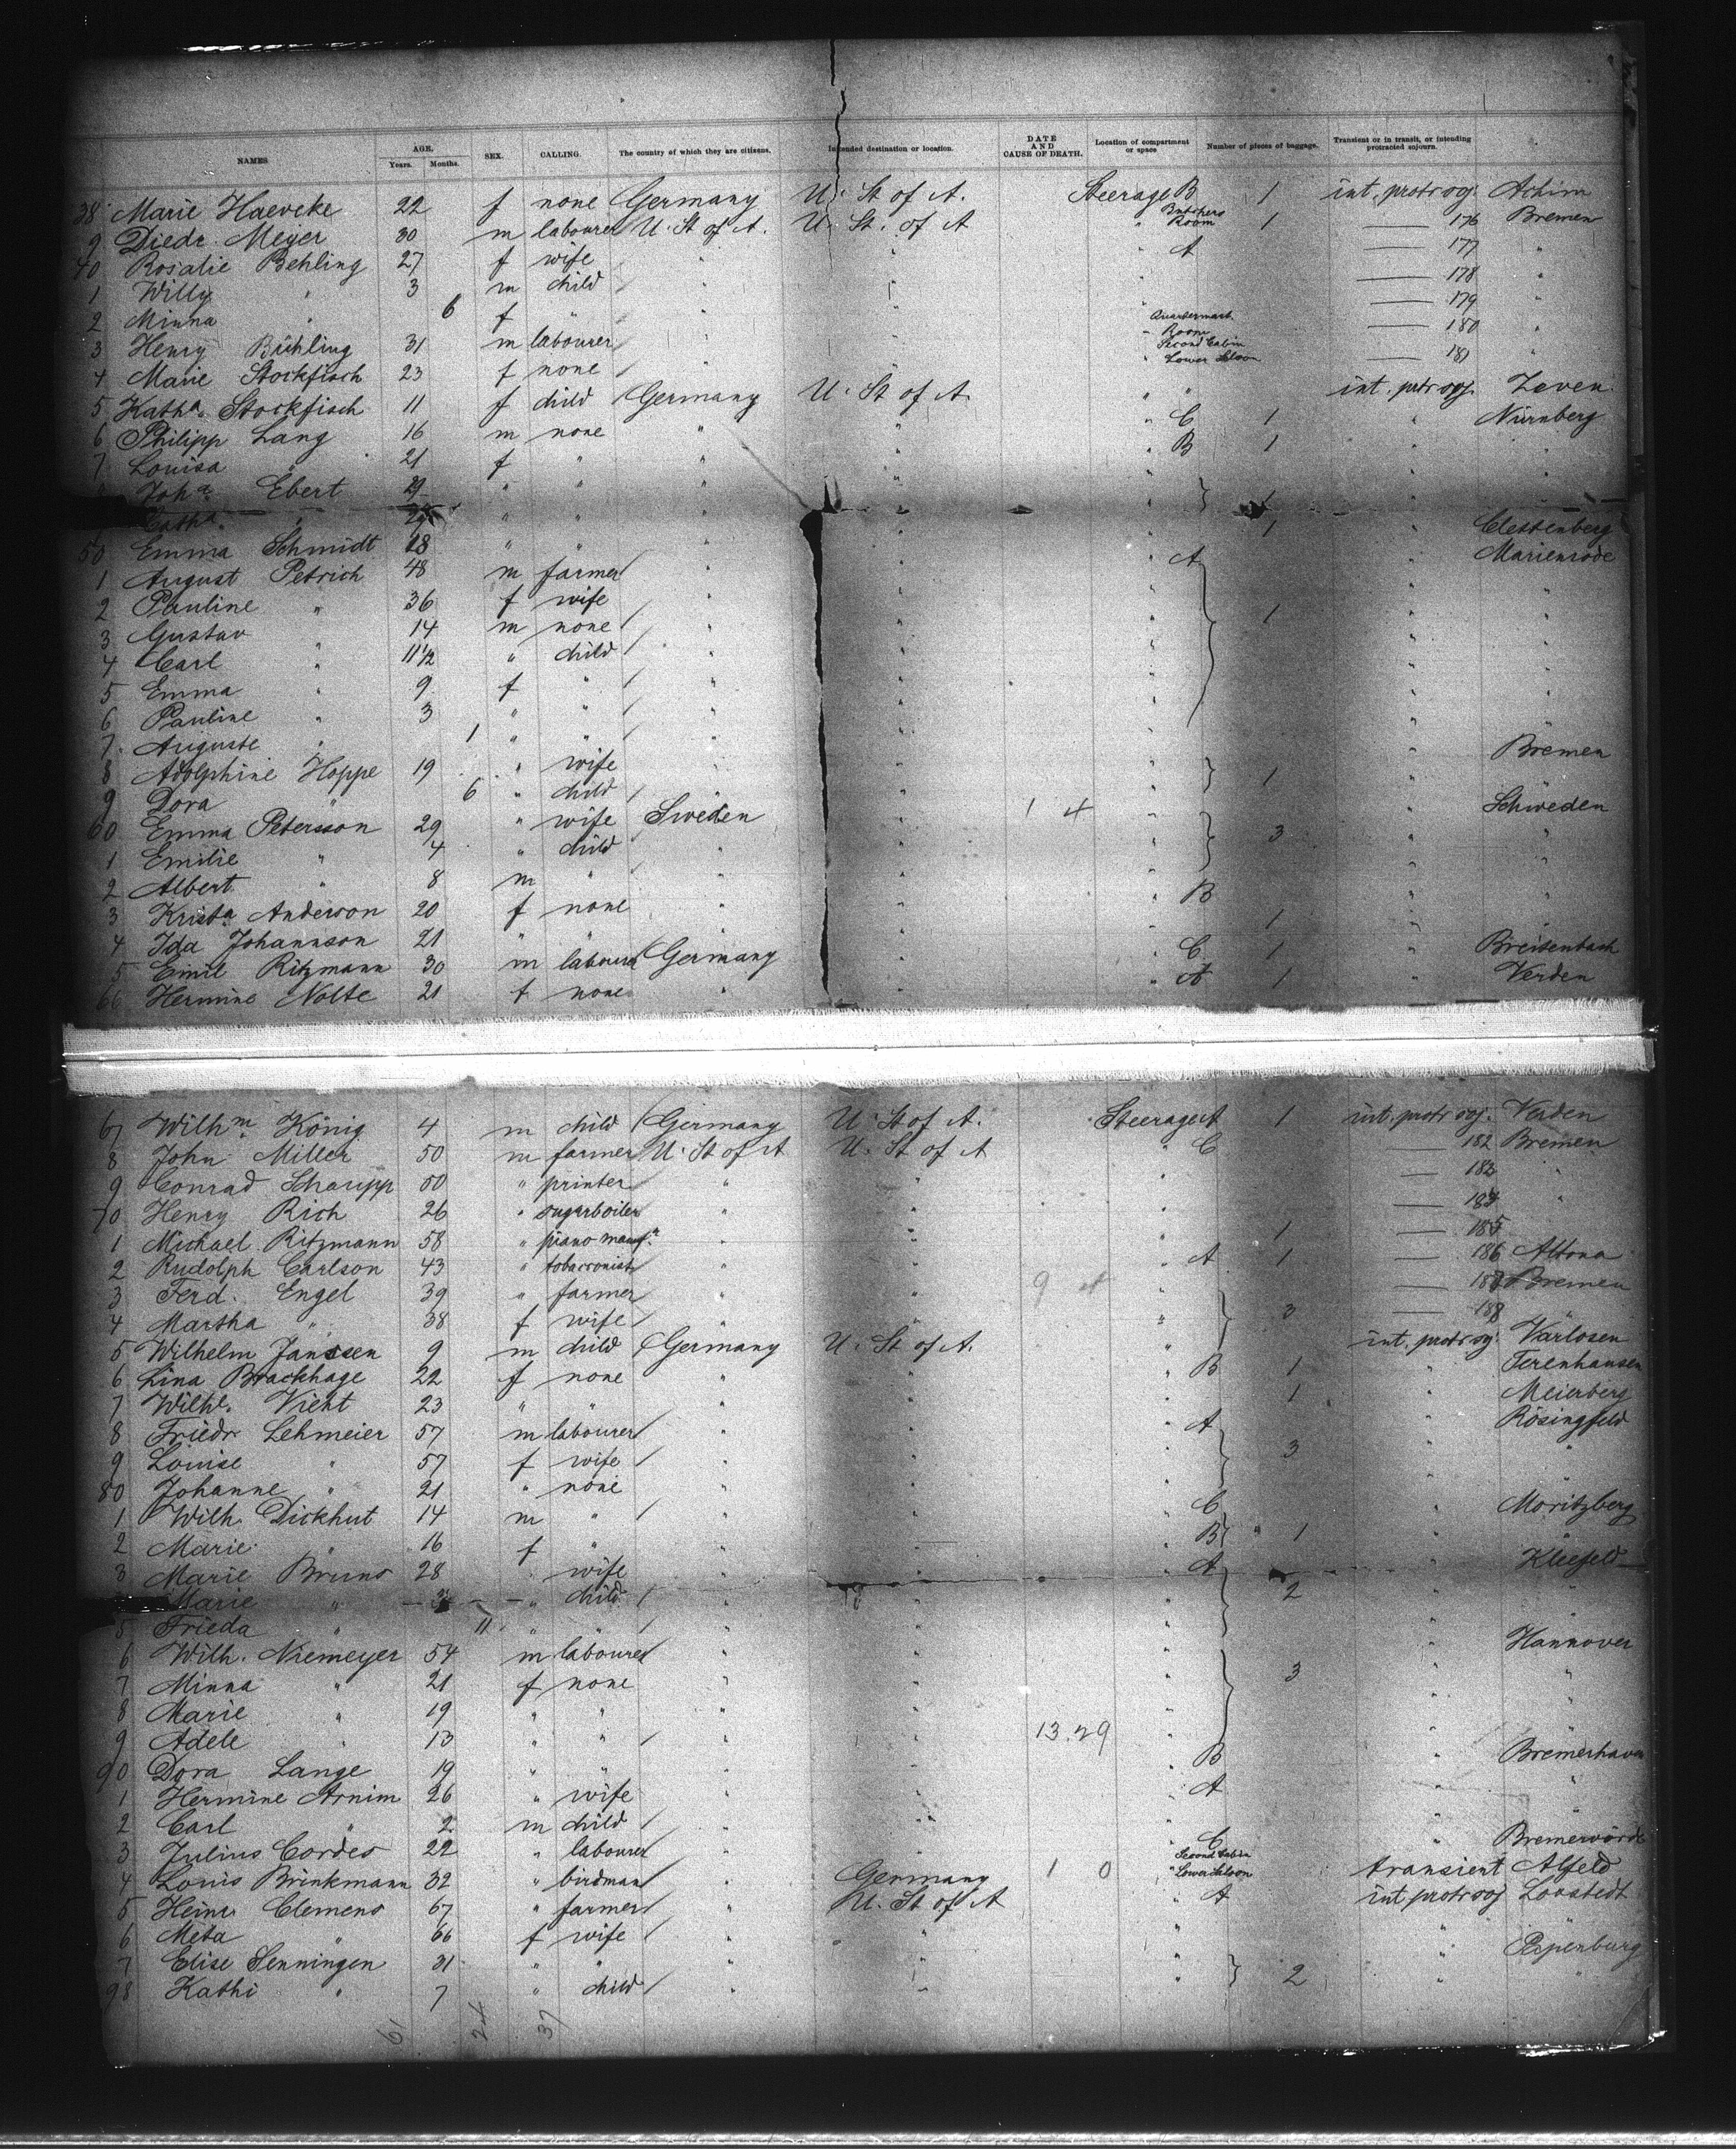 NAMES. AGE. Years. Months. SEX. CALLING. The country of which they are citizens. Intended destination or location. DATE AND CAUSE OF DEATH. Location of compartment or space Number of pieces of baggage. Transient or in transit, or intending protracted sojourn.
38 Marie Haevcke 22 f none Germany U. St of A. Steerage B 1 int. protr soj. Achim
9 Diedr. Meyer 30 m labourer U. St of A. U. St. of A " Butchers Room 1 — 176 Bremen
40 Rosalie Behling 27 f wife " " " A — 177 "
1 Willy " 3 m child " " — 178 "
2 Minna " 6 f " " " — 179 "
3 Henry Bühling 31 m labourer " " " Quartermast. Room — 180 "
4 Marie Stockfisch 23 f none " " " Second Cabin Lower Saloon — 181 "
5 Katha. Stockfisch 11 f child Germany U. St of A. " " int. protr soj. Zeven
6 Philipp Lang 16 m none " " " C 1 " Nürnberg
7 Louisa " 21 f " " " " B 1 " "
Joha Ebert 21 " " " " " } 1 " "
Catha. " " " " " "
50 Emma Schmidt 18 " " " " " 1 " Clettenberg
1 August Petrich 48 m farmer " " " A " Marienrode
2 Pauline " 36 f wife " " " " "
3 Gustav " 14 m none " " " 1 " "
4 Carl " 11 1/2 " child " " " " "
5 Emma " 9 f " " " " " "
6 Pauline " 3 " " " " " " "
7. Auguste " 1 " " " " " " "
8 Adolphine Hoppe 19 " wife " " " } 1 " Bremen
9 Dora " 6 " child " " " " "
60 Emma Petersson 29 " wife Sweden " 1 4 " } 3 " Schweden
1 Emilie " 4 " child " " " " "
2 Albert " 8 m " " " " " "
3 Krista Anderson 20 f none " " " B " "
4 Ida Johannson 21 " " " " " 1 " "
5 Emil Ritzmann 30 m labourer Germany " " C 1 " Breitenbach
66 Hermine Nolte 21 f none " " " A 1 " Verden
67 Wilhm. König 4 m child Germany U. St of A. Steerage A 1 int. protr soj. Verden
8 John Miller 50 m farmer U. St of A U. St of A " C — 182 Bremen
9 Conrad Scharipp 50 " printer " " " — 183 "
70 Henry Rich 26 " sugarboiler " " " — 184 "
1 Michael Ritzmann 58 " piano manf. " " " 1 — 185 "
2 Rudolph Carlson 43 " tobacconist " " " A 1 — 186 Altona
3 Ferd. Engel 39 " farmer " " 9 " — 187 Bremen
4 Martha " 38 f wife " " " } 3 — 188 "
5 Wilhelm Janssen 9 m child Germany U. St of A. " int. protr soj. Varlosen
6 Lina Brackhage 22 f none " " " B 1 "
7 Wilhe. Vieht 23 " " " " " 1 " Meierberg
8 Friedr Lehmeier 57 m labourer " " " A " Rösingfeld
9 Louise " 57 f wife " " " } 3 " "
80 Johanne " 21 " none " " " " "
1 Wilh. Dickhut 14 m " " " " C " Moritzberg
2 Marie " 16 f " " " " B " 1 " "
3 Marie Bruns 28 " wife " " " A " Kleefeld
Marie " " child " " " } 2 " "
5 Frieda " 11 " " " " " " "
6 Wilh. Niemeyer 54 m labourer " " " " Hannover
7 Minna " 21 f none " " " } 3 " "
8 Marie " 19 " " " " " " "
9 Adele " 13 " " " " 13.29 " " "
90 Dora Lange 19 " " " " " B " Bremerhaven
1 Hermine Arnim 26 " wife " " " A " "
2 Carl " 2 m child " " " " "
3 Julius Cordes 22 " labourer " " " C " Bremervörde
4 Louis Brinkmann 32 " birdman " Germany 1 0 " Second Cabin Lower Saloon transient Alfeld
5 Heinr. Clemens 67 " farmer " U. St of A " A int protr soj Loxstedt
6 Meta " 66 f wife " " " " "
7 Elise Senningen 31 " " " " " } 2 " Papenburg
98 Kathi " 7 " child " " " " "
61 24 37